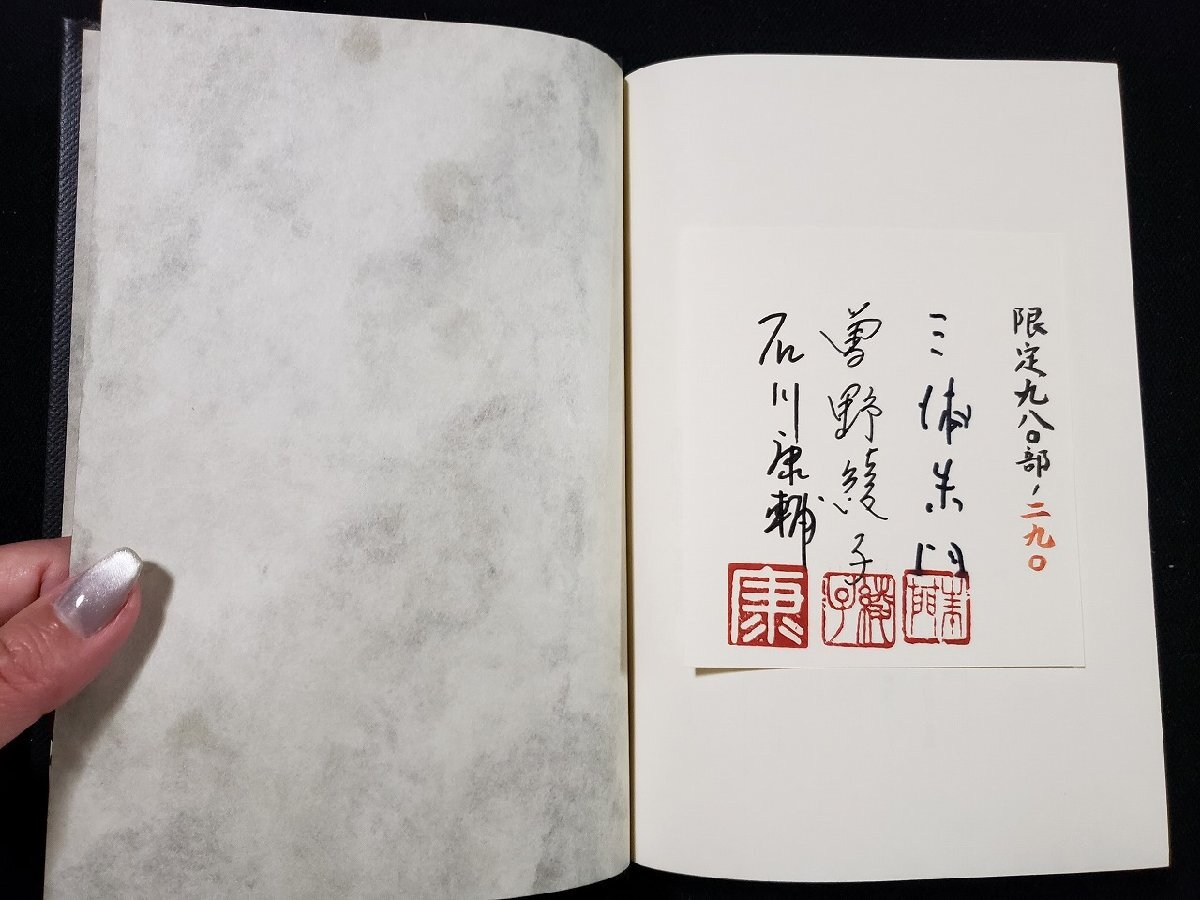 限定九八〇部ノ二九〇
三浦朱門
曽野綾子
石川康輔
朱門
綾子
康